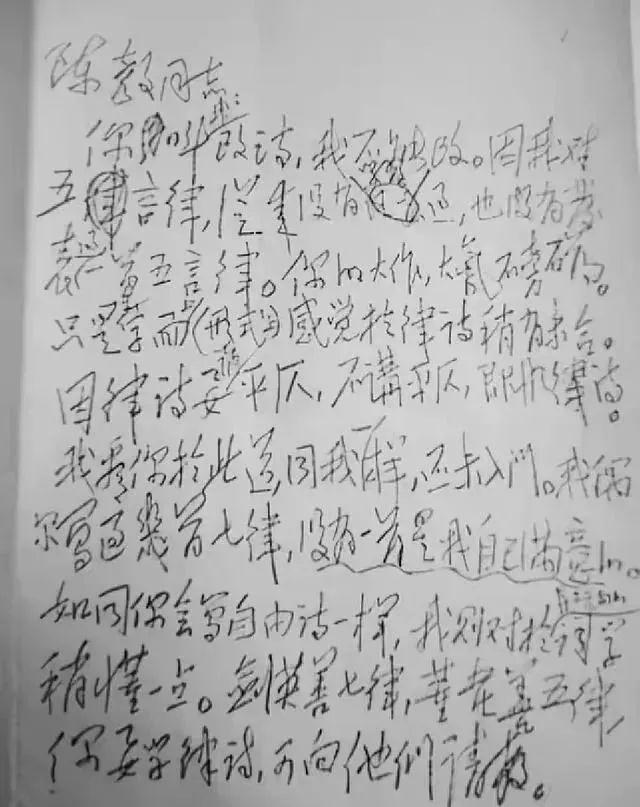 陈毅同志:
你叫我改诗,我不能改。因我对
五言律,从来没有学习过,也没有发
表过一首五言律。你的大作,大气磅礴。
只是在字面(形式)上感觉于律诗稍有未合。
因律诗要讲平仄,不讲平仄,即非律诗。
我看你于此道,同我一样,还未入门。我偶
尔写过几首七律,没有一首是我自己满意的。
如同你会写自由诗一样,我则对于长短句的词学
稍懂一点。剑英善七律,董老善五律,
你要学律诗,可向他们请教。